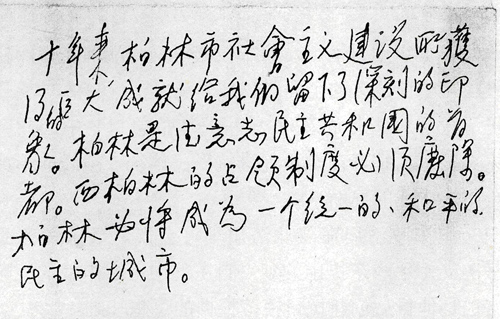 十年来柏林市社會主义建设所獲
得的巨大成就给我们留下了深刻的印
象。柏林是德意志民主共和國的首
都。西柏林的占领制度必须廢除。
柏林必将成為一个统一的、和平的
民主的城市。